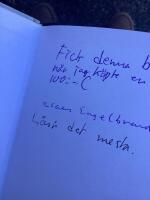 Fick denna b
när jag köpte en
100:- (
Engelbrand
Läst det mesta.